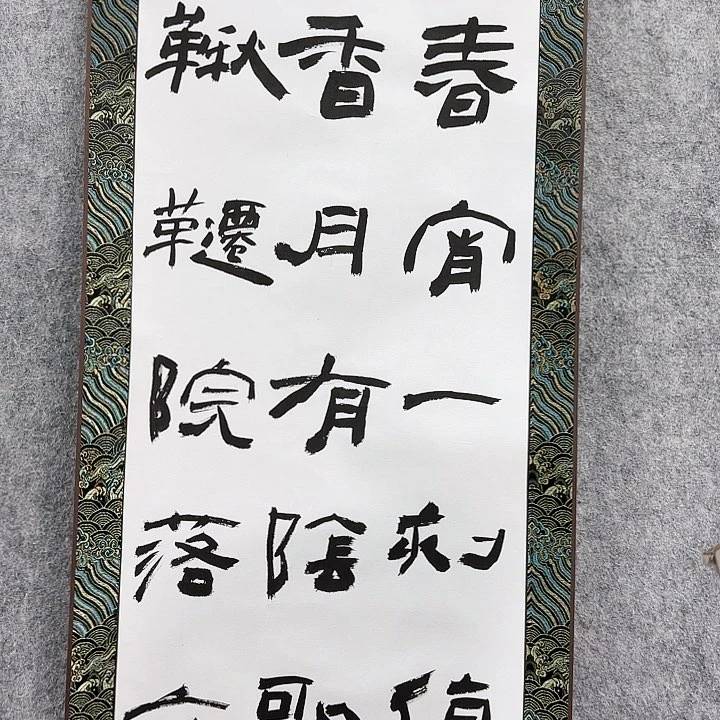 春宵一刻
香月有陰
鞦韆院落